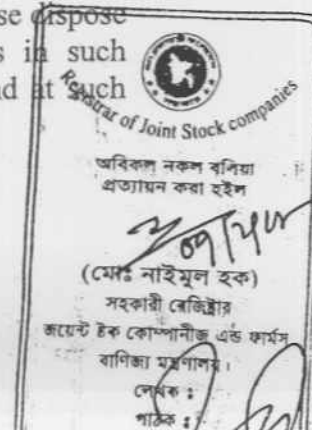 se dispose
s in such
nd at such
Registrar of Joint Stock companies
অবিকল নকল বলিয়া
প্রত্যায়ন করা হইল
(মোঃ নাইমুল হক)
সহকারী রেজিষ্ট্রার
জয়েন্ট ষ্টক কোম্পানীজ এন্ড ফার্মস
বাণিজ্য মন্ত্রণালয়।
লেখক :
পাঠক :